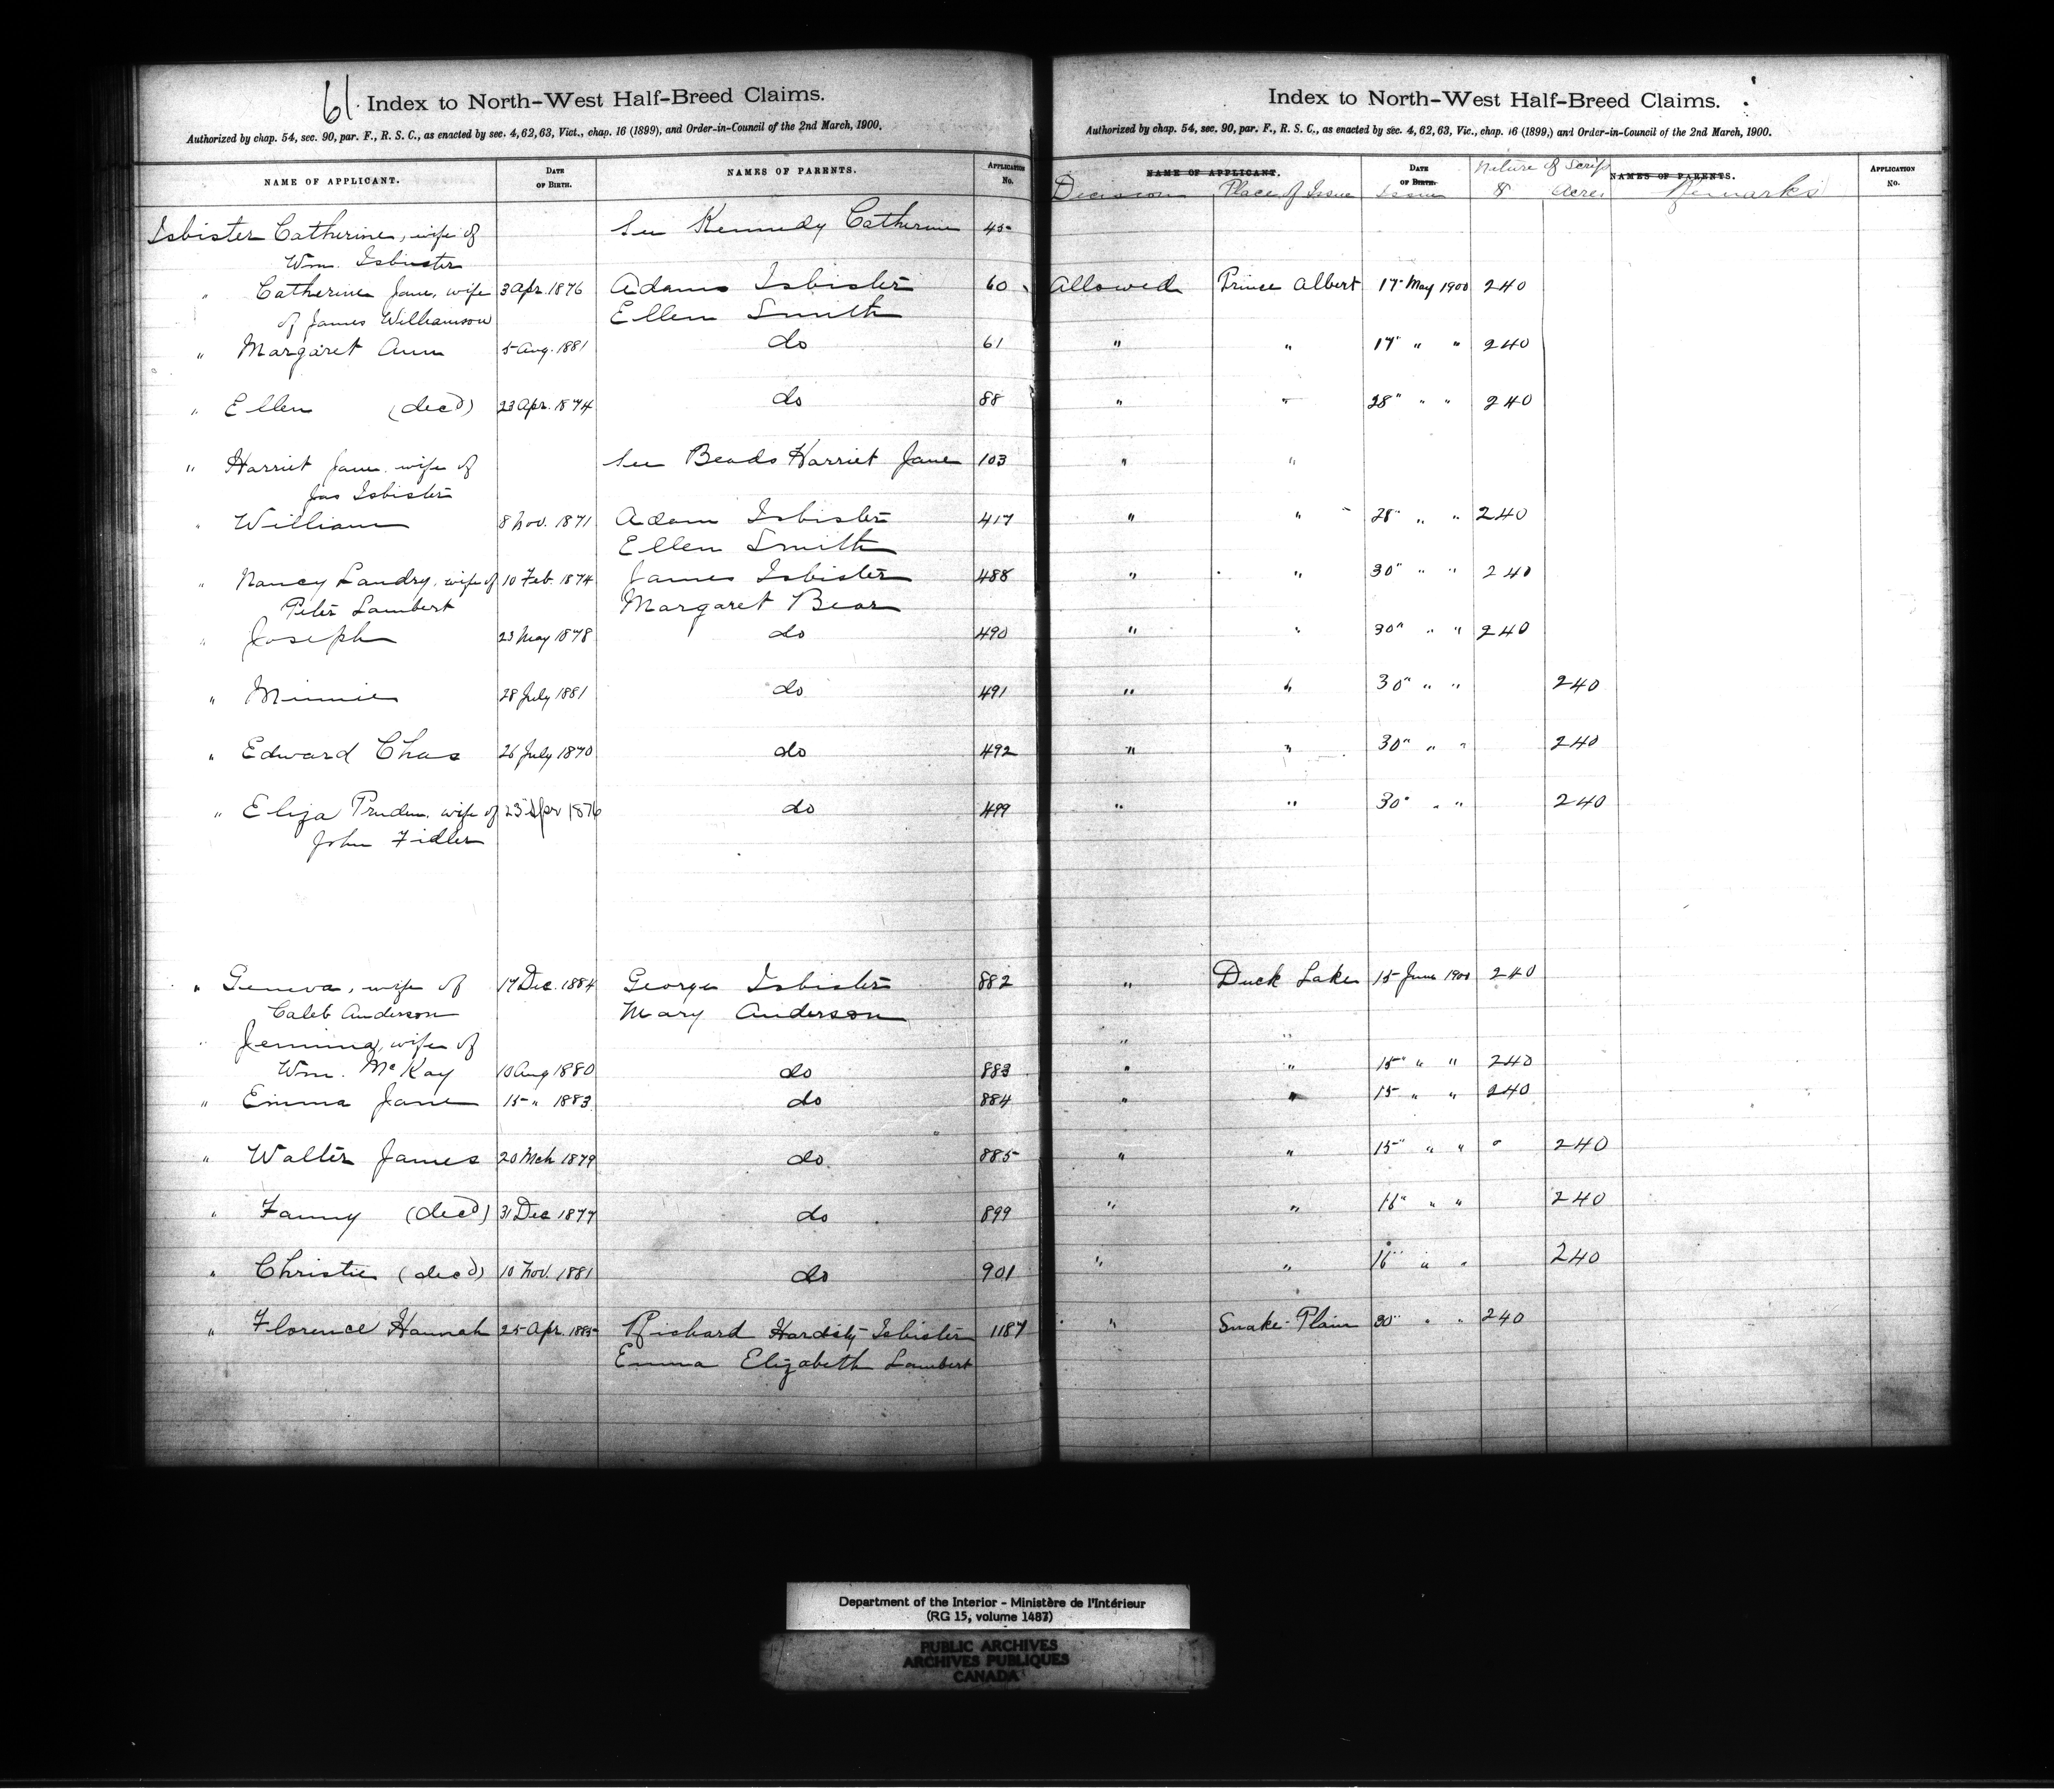 61.
Index to North-West Half-Breed Claims.
Authorized by chap. 54, sec. 90, par. F., R. S. C., as enacted by sec. 4, 62, 63, Vict., chap. 16 (1899), and Order-in-Council of the 2nd March, 1900.
NAME OF APPLICANT. DATE OF BIRTH. NAMES OF PARENTS. APPLICATION No.
Isbister Catherine, wife of See Kennedy Catherine 45
Wm. Isbister
" Catherine Jane, wife 3 Apr. 1876 Adams Isbister 60
of James Williamson Ellen Smith
" Margaret Ann 5 Aug. 1881 do 61
" Ellen (decd) 23 Apr. 1874 do 88
" Harriet Jane wife of See Beads Harriet Jane 103
Jas Isbister
" William 8 Nov. 1871 Adam Isbister 417
Ellen Smith
" Nancy Landry, wife of 10 Feb. 1874 James Isbister 488
Peter Lambert Margaret Bear
" Joseph 23 May 1878 do 490
" Minnie 28 July 1881 do 491
" Edward Chas 26 July 1870 do 492
" Eliza Pruden, wife of 23 Apr 1876 do 499
John Fidler
" Geneva, wife of 17 Dec. 1884 George Isbister 882
Caleb Anderson Mary Anderson
" Jemima, wife of
Wm. McKay 10 Aug 1880 do 883
" Emma Jane 15 " 1883 do 884
" Walter James 20 Mch 1879 do 885
" Fanny (decd) 31 Dec 1877 do 899
" Christie (decd) 10 Nov. 1881 do 901
" Florence Hannah 25 Apr. 1885 Richard Hardisty Isbister 1187
Emma Elizabeth Lambert
Index to North-West Half-Breed Claims.
Authorized by chap. 54, sec. 90, par. F., R. S. C., as enacted by sec. 4, 62, 63, Vic., chap. 16 (1899,) and Order-in-Council of the 2nd March, 1900.
NAME OF APPLICANT. DATE OF BIRTH. Nature of Scrip NAMES OF PARENTS. APPLICATION No.
Decision Place of Issue Issue $ Acres Remarks
Allowed Prince Albert 17 May 1900 240
" " 17 " " 240
" " 28 " " 240
" "
" " 28 " " 240
" " 30 " " 240
" " 30 " " 240
" " 30 " " 240
" " 30 " " 240
" " 30 " " 240
" Duck Lake 15 June 1900 240
" "
" " 15 " " 240
" " 15 " " 240
" " 15 " " " 240
" " 16 " " 240
" " 16 " " 240
" Snake Plain 30 " " 240
Department of the Interior - Ministère de l'Intérieur
(RG 15, volume 1487)
PUBLIC ARCHIVES
ARCHIVES PUBLIQUES
CANADA